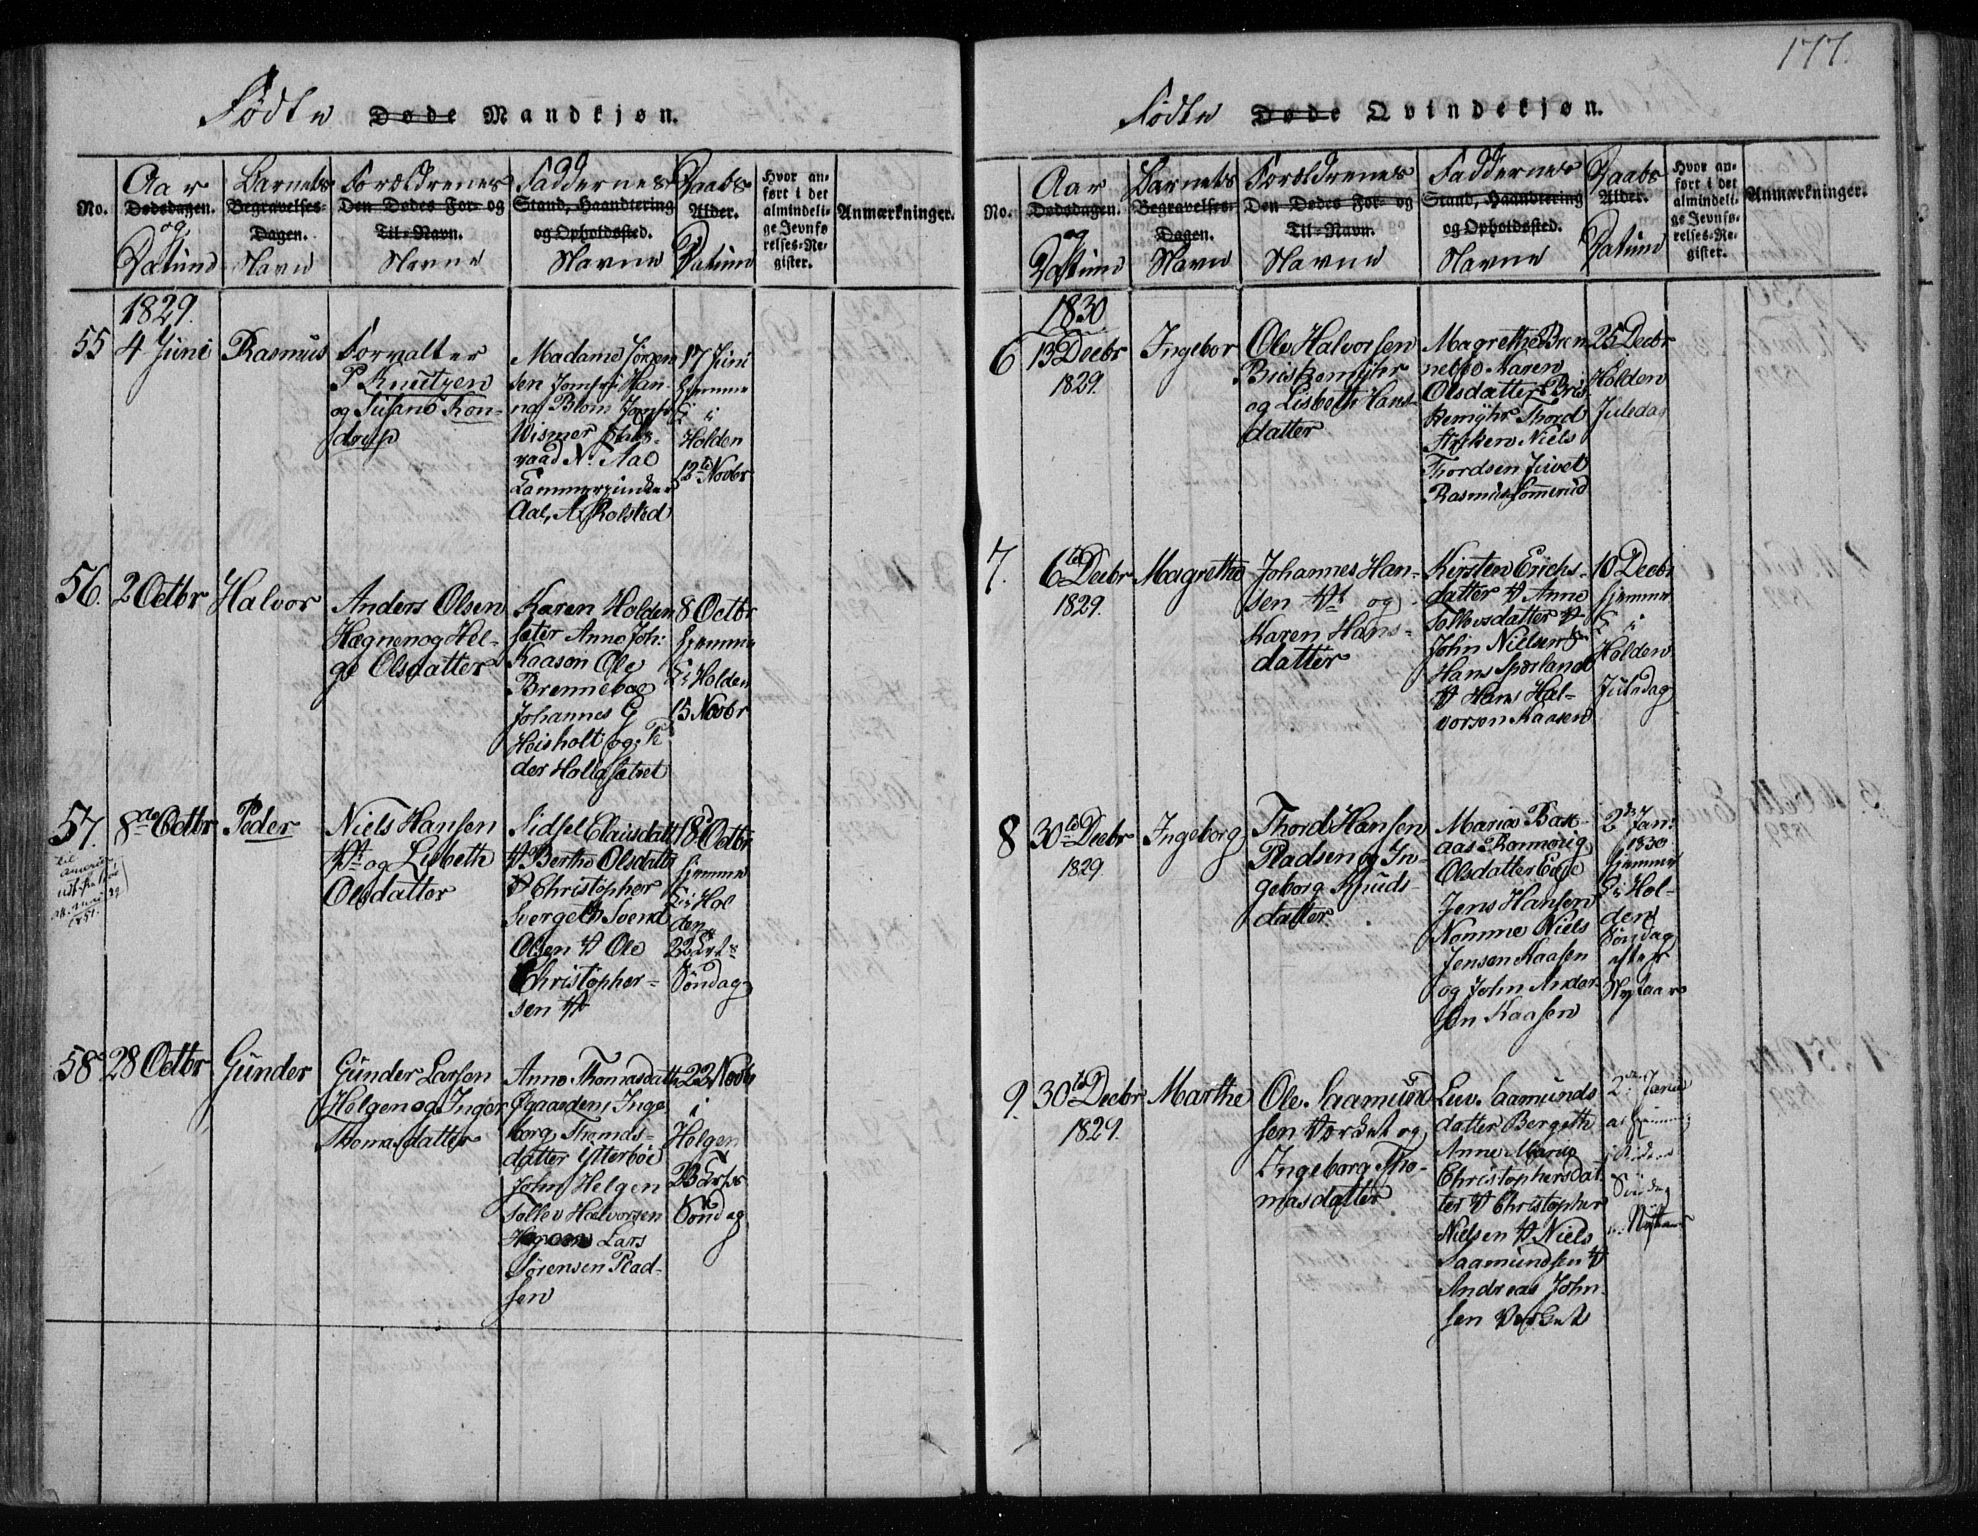 177.
Födte Døde Mandkjøn.
No.
Aar
Dødsdagen.
og
Datum
Barnets
Begravelses-
Dagen.
Navn
Forældrenes
Den Dødes For- og
Til-Navn.
Navne
Faddernes
Stand, Haandtering
og Opholdssted.
Navne
Daabs
Alder.
Datum
Hvor an-
ført i det
almindeli-
ge Jevnfø
relses-Re-
gister.
Anmærkninger.
1829.
55
4 Juni
Rasmus
Forvalter
P Knutzen
og Susane
Madame Jörgen
sen Jomfru Han-
na Blom
Wismer
N. Aal
Aal, A. Rolsted
17 Juni
hjemme
i
Holden
12te Novbr
56.
2 Octbr
Halvor
Anders Olsen
Hægnen og Hel-
ge Olsdatter
Karen Holden
sæter Anne Joh:
Kaasen Ole
Brennebae
Johannes G
Heisholt og Pe
der Holdsætret
8 Octbr
hjemme
i Holden
15 Novbr
57.
8de Octbr
Peder
til
Amerika
1851.
Niels Hansen
og Lisbeth
Olsdatter
Sidsel Clausdatt
Berthe Olsdatt
Christopher
Svergeth Svend
Olsen Ole
Christopher-
sen
18d Octbr
hjemme
i Hol
den
22
Söndag
58
28 Octbr
Gunder
Gunder Larsen
Helgen og Inger
Thomasdatter
Anne Thomasdatt
Øgaarden, Inge
borg Thomas-
datter Ytterböe
John Helgen
Tollev Halvorsen
Lars
Sörensen Plad-
sen
22 Novbr
i
Helgen
Sönd ag
Födte Døde Qvindekjøn.
No.
Aar
Dødsdagen.
og
Datum
Barnets
Begravelses-
Dagen.
Navn
Forældrenes
Den Dødes For- og
Til-Navn.
Navne
Faddernes
Stand, Haandtering
og Opholdssted.
Navne
Daabs
Alder.
Datum
Hvor an-
ført i det
almindeli-
ge Jevnfø-
relses-Re-
gister.
Anmærkninger.
1830
6
13 Decbr
1829.
Ingebor
Ole Halvorsen
Briskemyhr
og Lisbeth Hans-
datter
Magrethe Bren
nebae Karen
Olsdatter Bris
kemyhr Thord
Niels
Thordsen Juvet
Rasmus Sommerud
25 Decbr
Holden
Juledag
7.
6te Decbr
1829.
Magrethe
Johannes Han-
sen og
Karen Hans-
datter
Kirsten Erichs-
datter Anne
Tollevsdatter
John Nielsen
Hans Sporland
Hans Hal-
vorsen Kaasen
10 Decbr
hjemme
i
Holden
Juledag
8
30te Decbr
1829
Ingeborg
Thord Hansen
Pladsen og In-
geborg Knuds-
datter.
Maria Bak-
aas Ronnovig
Olsdatter Ege
Jens Hansen
Nomme Niels
Jensen Kaasen
og John Ander-
sen Kaasen
2de Jan:
1830
hjemme
i Hol-
den
Söndag
efter
Nytaar
9.
30te Decbr
1829.
Marthe
Ole Saamund-
sen Værket og
Ingeborg Tho-
masdatter
Liv Saamunds
datter Bergeth
Anne Marie
Christophersdat
ter Christopher
Nielsen Niels
Saamundsen
Andreas John
sen Værket
2de Janu
Nytaar